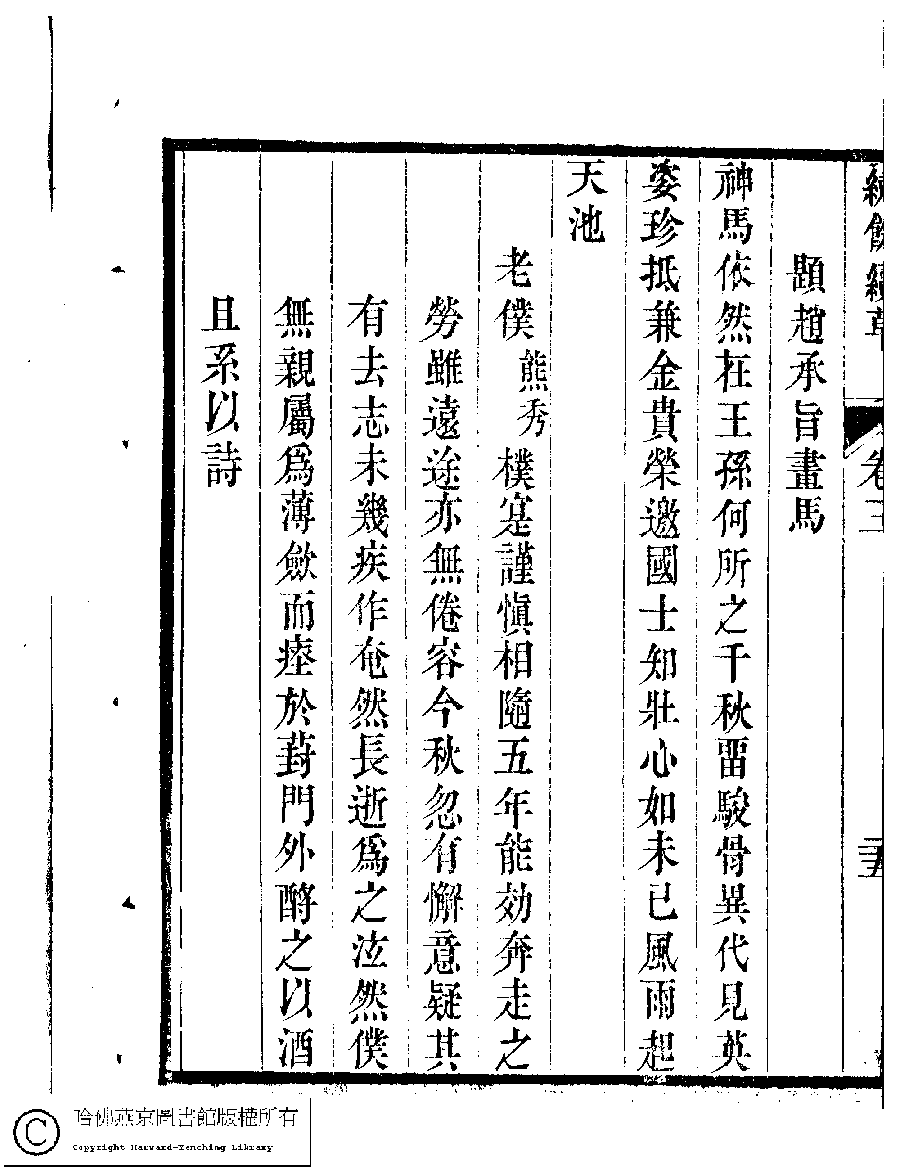 題趙承旨畫馬
神馬依然在王孫何所之千秋畱駿骨異代見英
姿珍抵兼金貴榮邀國士知壯心如未已風雨起
天池
老僕熊秀樸寔謹愼相隨五年能効奔走之
勞雖遠途亦無倦容今秋忽有懈意疑其
有去志未幾疾作奄然長逝爲之泫然僕
無親屬爲薄斂而瘞於葑門外酹之以酒
且系以詩
哈佛燕京圖書館版權所有
Copyright Harvard-Yenching Library